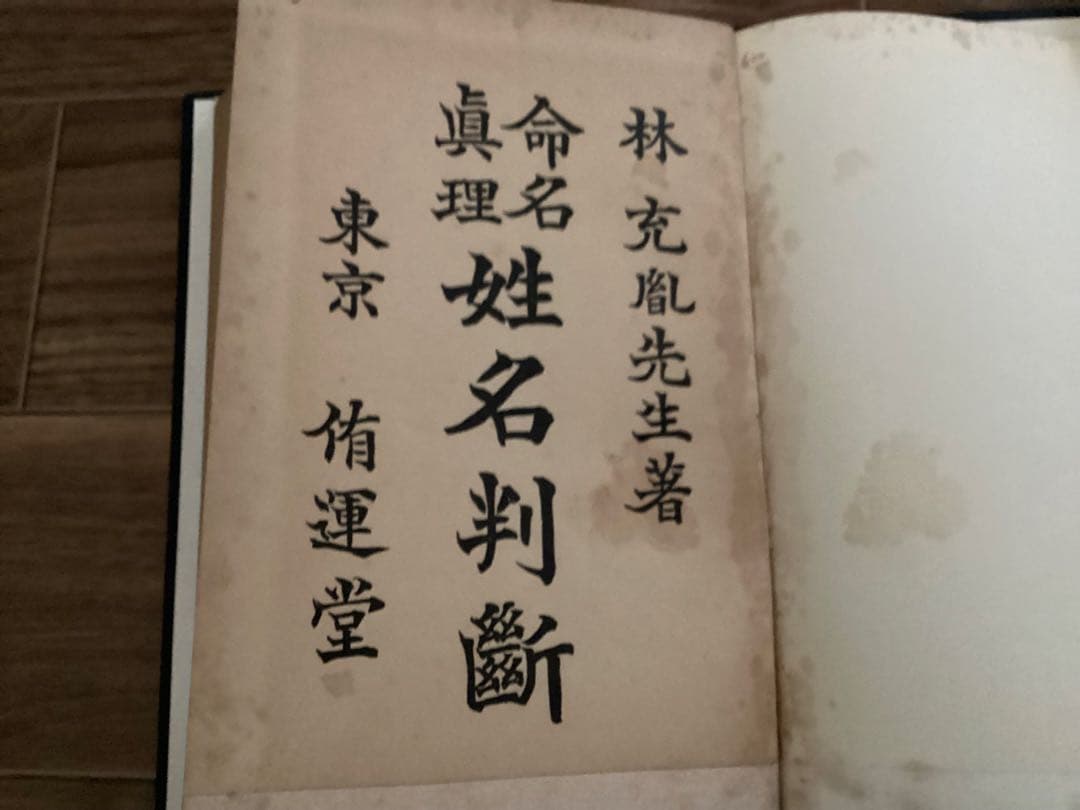 林充胤先生著
命名
眞理
姓名判斷
東京 侑運堂